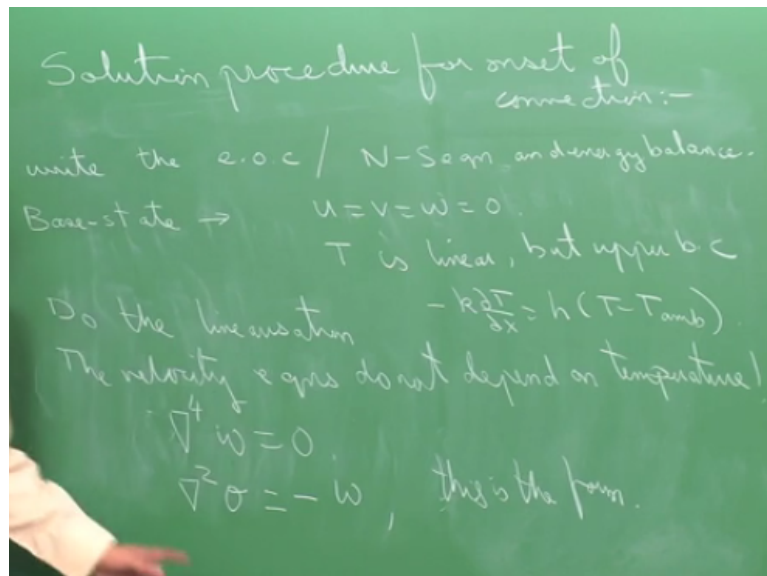 Solution procedure for onset of
convection:-
write the e.o.c / N-S eqn and energy balance.
Base-state → u=v=w=0.
T is linear, but upper b.c
Do the linearisation -k ∂T/∂x = h(T-Tamb).
The velocity eqns do not depend on temperature!
∇⁴w=0.
∇²θ=-w, this is the form.